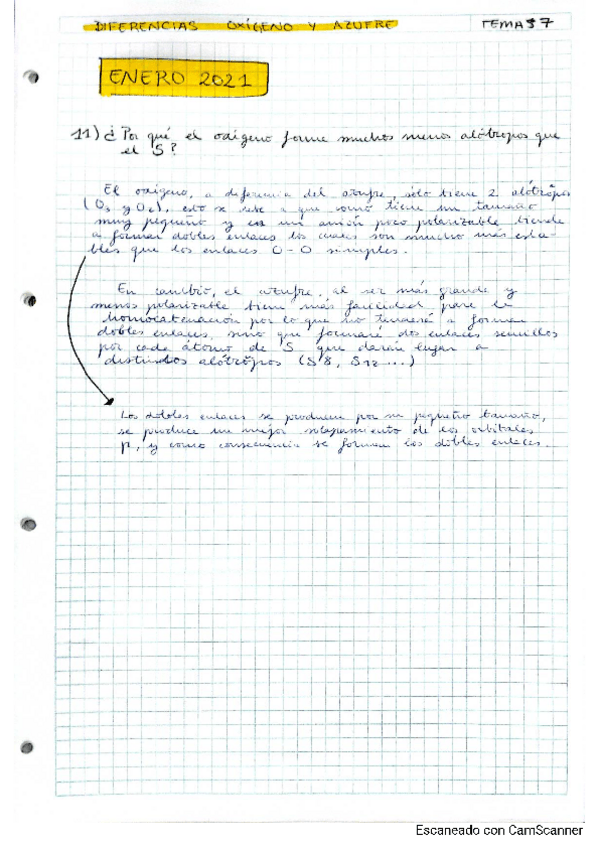 DIFERENCIAS OXÍGENO Y AZUFRE TEMA 7
ENERO 2021
11) ¿Por qué el oxígeno forme muchos menos alótropos que
el S?
El oxígeno, a diferencia del azufre, sólo tiene 2 alótropos
(O3 y O2), esto se debe a que como tiene un tamaño
muy pequeño y es un anión poco polarizable tiende
a formar dobles enlaces los cuales son mucho más esta-
bles que los enlaces O-O simples.
En cambio, el azufre, al ser más grande y
menos polarizable tiene más facilidad para la
homocatenación por lo que no tenderá a formar
dobles enlaces, sino que formará dos enlaces sencillos
por cada átomo de S que darán lugar a
distintos alótropos (S8, S12 ...)
Los dobles enlaces se producen por su pequeño tamaño,
se produce un mejor solapamiento de los orbitales
p, y como consecuencia se forman los dobles enlaces.
Escaneado con CamScanner